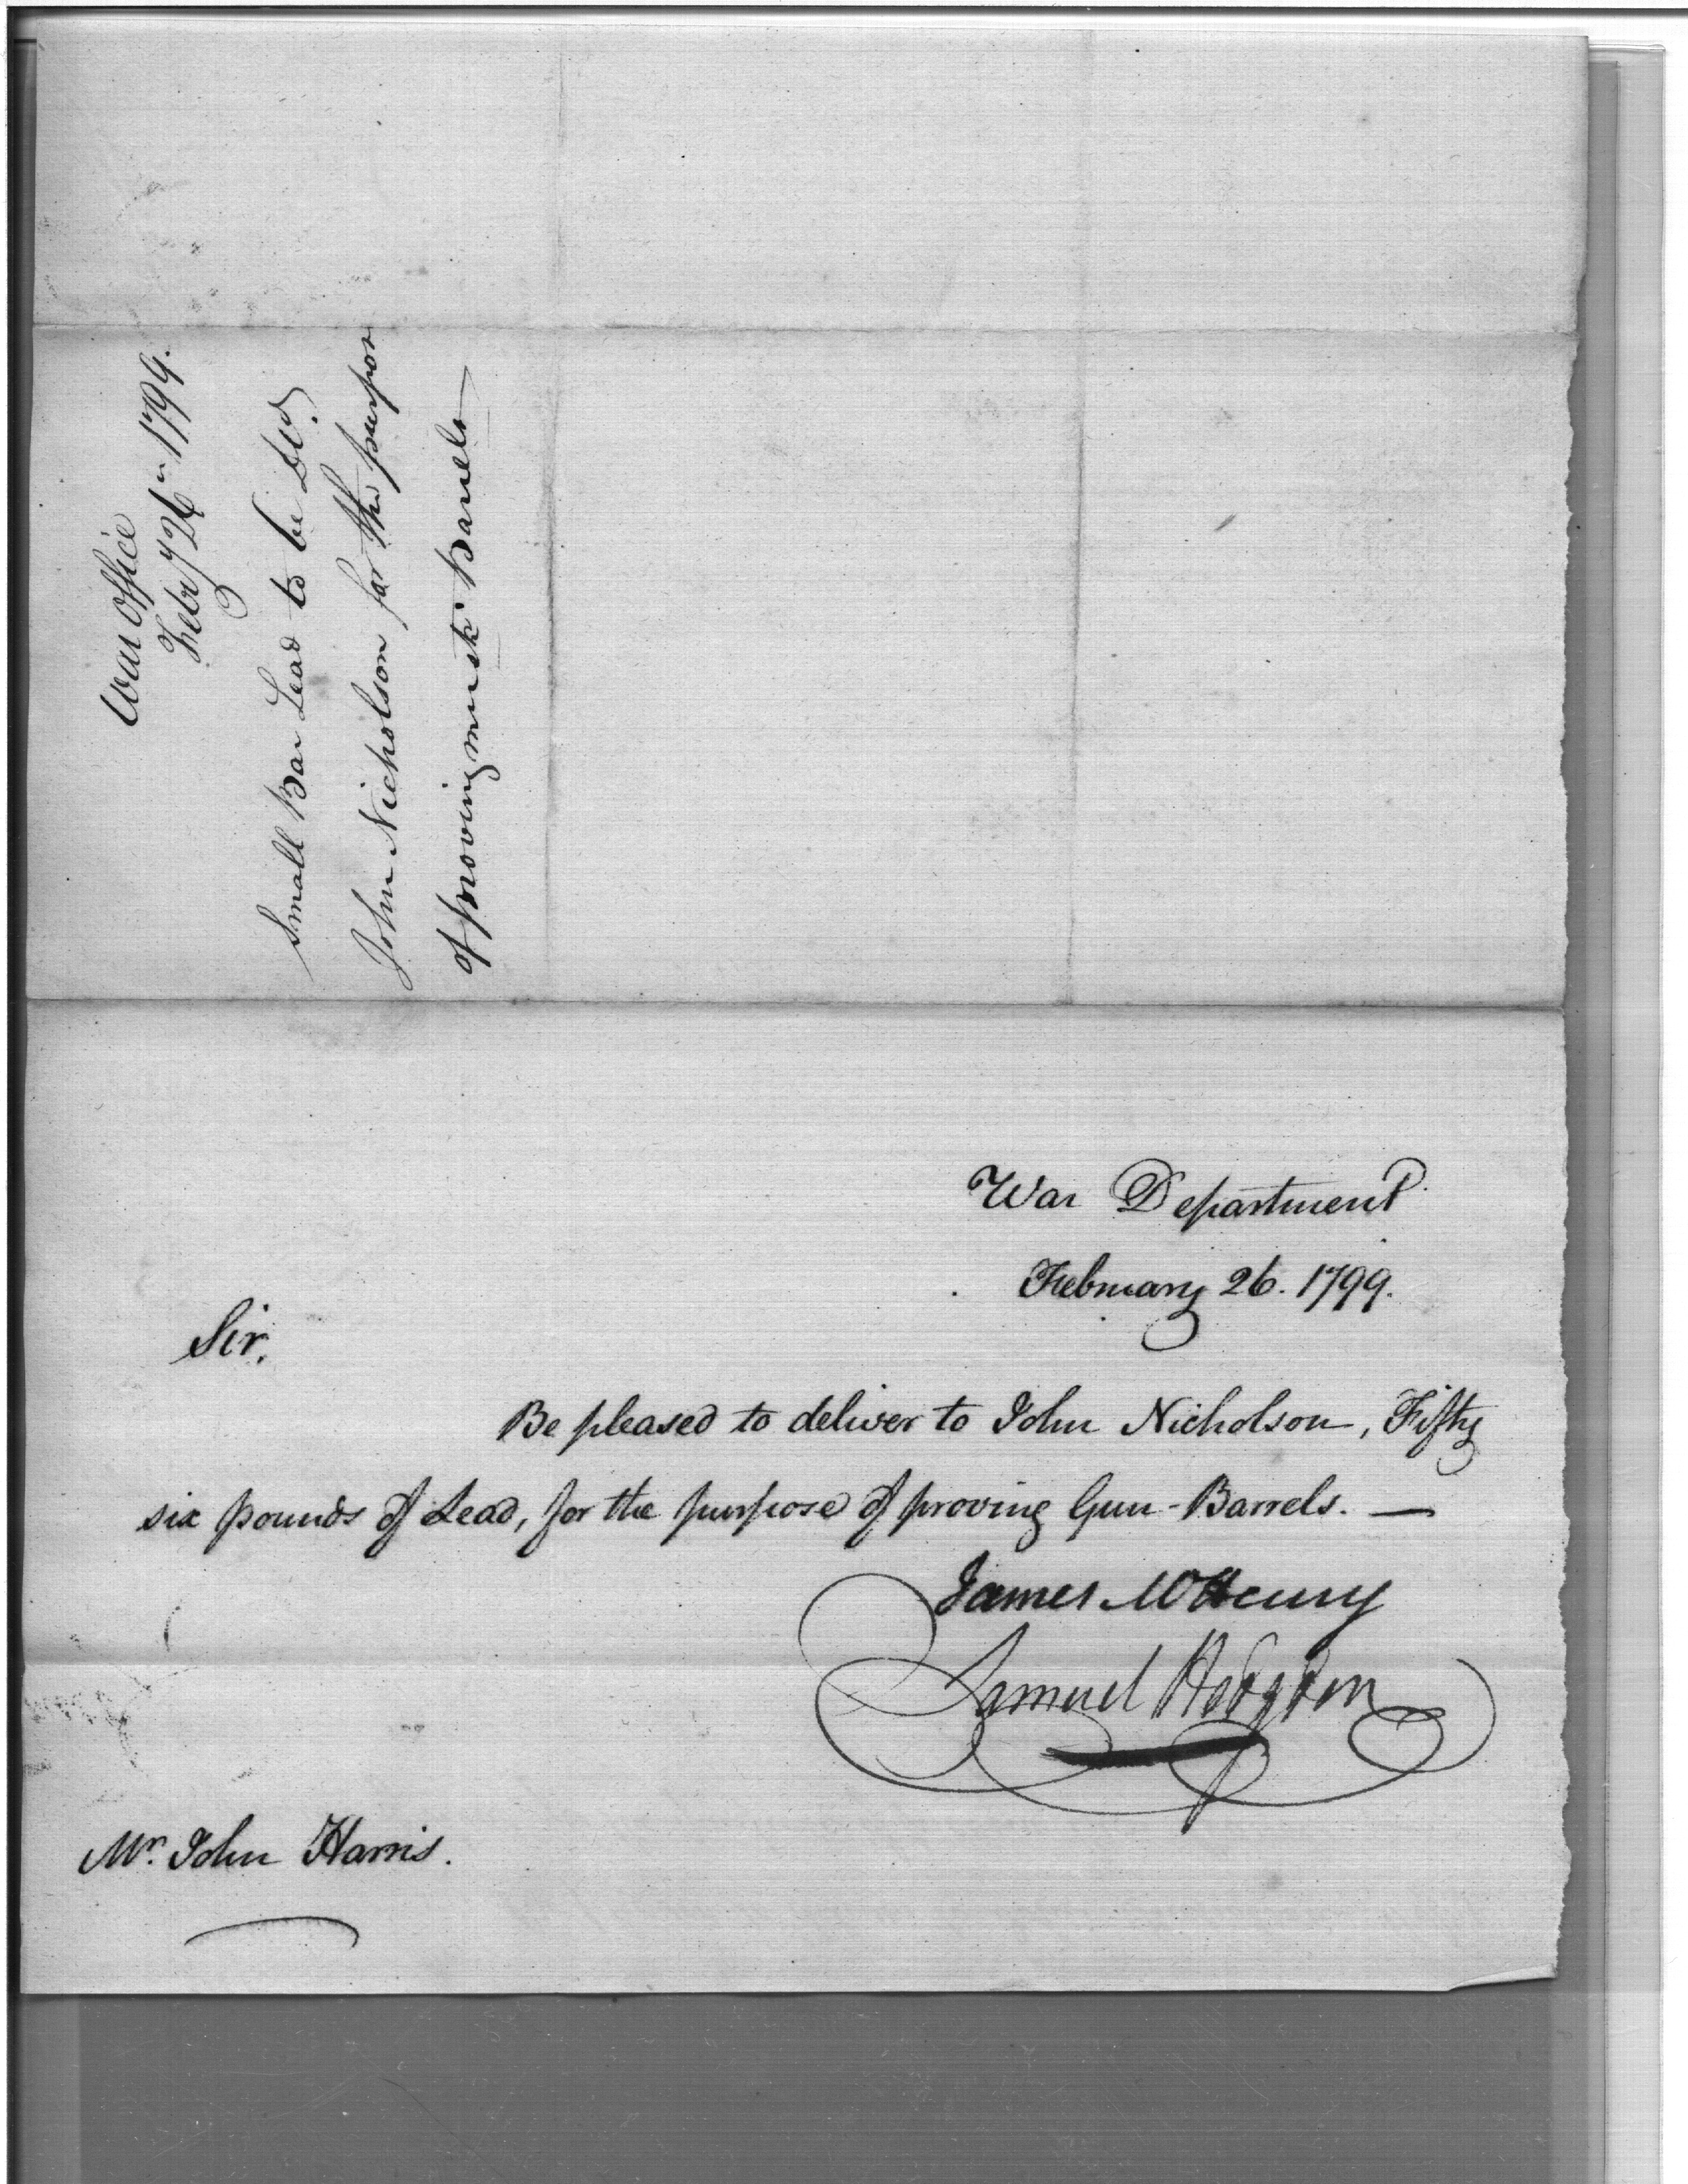 War Office
Feby 26th 1799.
Small Bar Lead to be
John Nicholson for the purpose
of proving musk.t Barrels
War Department
February 26. 1799.
Sir,
Be pleased to deliver to John Nicholson, Fifty
six pounds of Lead, for the purpose of proving Gun-Barrels. —
James McHenry
Samuel Hodgdon
Mr. John Harris.